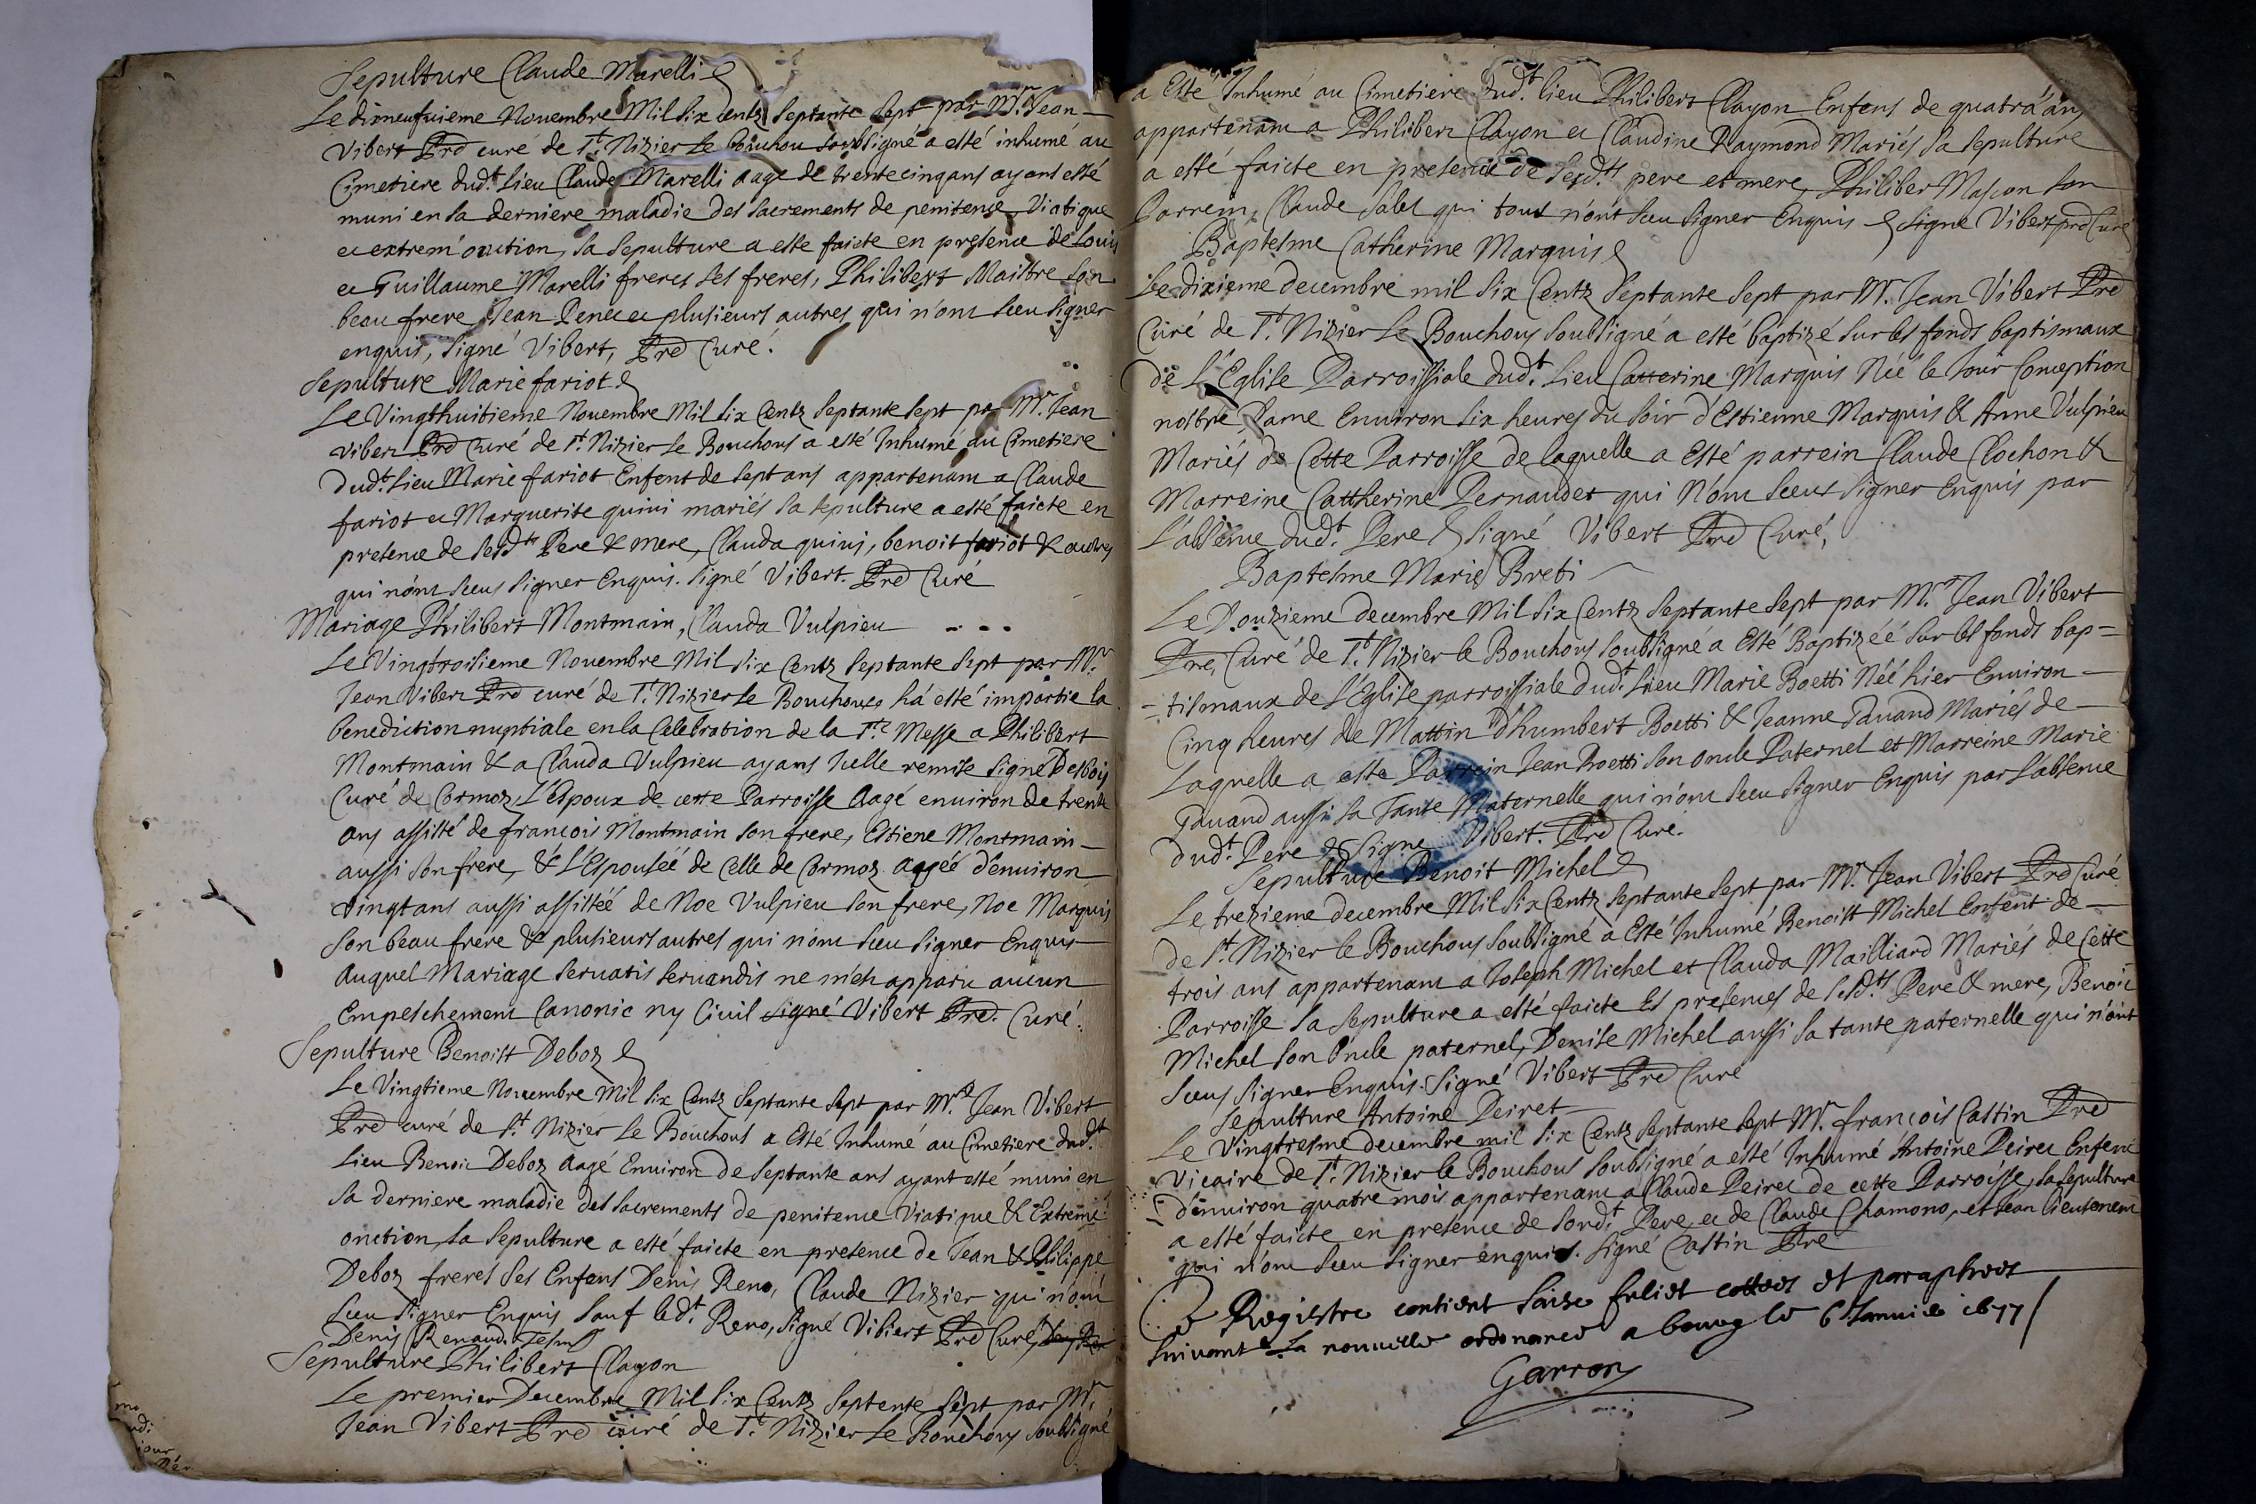 Sepulture Claude Marelli
Le dixneufuieme Nouembre Mil Six Centz Septante Sept par Mr. Jean
Vibert Pre curé de St. Nizier le Bouchou soubsigné a esté inhumé au
Cimetiere dudt. Lieu Claude Marelli aage de trente cinq ans ayans esté
muni en sa derniere maladie des sacrements de penitense Viatique
et extrem'onction, sa Sepulture a este faicte en presence de Louis
et Guillaume Marelli freres ses freres, Philibert Maistre son
beau frere Jean et plusieurs autres qui n'ont sceu signer
enquis, signé Vibert, Pre Curé.
Sepulture Marie fariot
Le Vingthuitieme Nouembre Mil Six Centz Septante Sept par Mr. Jean
Viber Pre Curé de St. Nizier le Bouchous a esté Inhumé au Cimetiere
dudt. Lieu Marie fariot Enfent de sept ans appartenant a Claude
fariot et Marguerite quini mariés sa sepulture a esté faicte en
presence de sesdts Pere & mere, Clauda quini, benoit fariot & autres
qui n'ont sceus signer Enquis. signé Vibert. Pre Curé
Mariage Philibert Montmain, Clauda Vulpieu
Le Vingtroisieme Nouembre Mil Six Centz Septante Sept par Mr.
Jean Viber Pre curé de St. Nizier le Bouchoux há esté impartie la
benediction nuptiale en la Celebration de la Ste Messe a Philibert
Montmain & a Clauda Vulpieu ayans Icelle remise signé Desbois
Curé de Cormoz, L'Espoux de cette Parroisse Aagé enuiron de trente
ans assisté de francois Montmain son frere, Estiene Montmain
aussi son frere, & L'Espouséé de Celle de Cormoz aagéé d'enuiron
vingt ans aussi assistéé de Noe Vulpieu son frere, Noe Marquis
son beau frere & plusieurs autres qui n'ont sceu signer Enquis
Auquel Mariage seruatis seruandis ne m'est apparu aucun
Empeschement Canonic ny Ciuil signé Vibert Pre. Curé.
Sepulture Benoist Deboz
Le Vingtieme Nouembre Mil Six Centz Septante Sept par Mre Jean Vibert
Pre curé de St. Nizier le Bouchous a Esté Inhumé au Cimetiere dudt
Lieu Benoit Deboz Aagé Enuiron de septante ans ayant esté muni en
sa derniere maladie des sacrements de penitence Viatique & Extreme
onction, sa sepulture a esté faicte en presence de Jean & Philippe
Deboz freres ses Enfens Denis Reno, Claude Nizier qui n'ont
sceu signer Enquis sauf ledt. Reno, signé Vibert Pre Curé,
Denis Renaud
Sepulture Philibert Clayon
Le premier Decembre Mil Six Centz Septente Sept par Mr.
Jean Vibert Pre curé de St. Nizier le Bouchous soubsigné
a Esté Inhumé au Cimetiere dudt. lieu Philibert Clayon Enfens de quatrá ans
appartenant a Philiber Clayon et Claudine Raymond Mariés sa sepulture
a esté faicte en presence de sesdts pere et mere, Philiber Mascon son
Parrein, Claude Salet qui tous n'ont sceu signer Enquis signé Vibert pre Curé
Baptesme Catherine Marquis
Le dixieme decembre mil Six Centz Septante Sept par Mr. Jean Vibert Pre
Curé de St. Nizier le Bouchous soubsigné a esté baptizé sur les fonds baptismaux
de L'Eglise Parroissiale dudt. Lieu Catterine Marquis Néé le Jour Conception
nostre Dame Enuiron six heures du soir d'Estienne Marquis & Anne Vulpieu
Mariés de Cette Parroisse de laquelle a Esté parrein Claude Clochon &
Marreine Cattherine Pernaudet qui n'ont sceus signer Enquis par
L'absence dudt. Pere signé Vibert Pre Curé,
Baptesme Marie Breti
Le Douzieme decembre Mil Six Centz Septante Sept par Mr. Jean Vibert
Pre, Curé de St. Nizier le Bouchous soubsigné a Esté Baptizéé sur les fonds bap=
=tismaux de L'Eglise parroissiale dudt. Lieu Marie Boetti Néé hier Enuiron=
Cinq heures de Mattin d'humbert Boetti & Jeanne Dauand Mariés de
Laquelle a este Parrein Jean Boetti son oncle Paternel et Marreine Marie
Dauand aussi sa Tante Maternelle qui n'ont sceu signer Enquis par L'absence
dudt. Pere & signé Vibert. Pre Curé.
Sepulture Benoit Michel
Le trezieme decembre Mil Six Centz Septante Sept par Mr. Jean Vibert Pre Curé
de St. Nizier le Bouchous soubsigné a Esté Inhumé Benoist Michel Enfent de
trois ans appartenant a Joseph Michel et Clauda Mailliard Mariés de Cette
Parroisse sa Sepulture a esté faicte Es presences de sesdts Pere & mere, Benoit
Michel son Oncle paternel, Denise Michel aussi sa tante paternelle qui n'ont
sceus signer Enquis. signé Vibert Pre Curé
Sepulture Antoine Peiret
Le Vingtiesme decembre mil six Centz septante sept Mr. francois Castin Pre
Vicaire de St. Nizier le Bouchous soubsigné a esté Inhumé Antoine Peiret Enfent
d'enuiron quatre mois appartenant a Claude Peiret de cette Parroisse, sa sepulture
a esté faicte en presence de sondt. Pere et de Claude Chamono, et Jean lieutenent
qui n'ont sceu signer enquis. signé Castin Pre
Ce Registre contient saise feliet cottees et paraphees
suivant la nouuelle ordonance a bourg le 6 Januié 1677
Garron